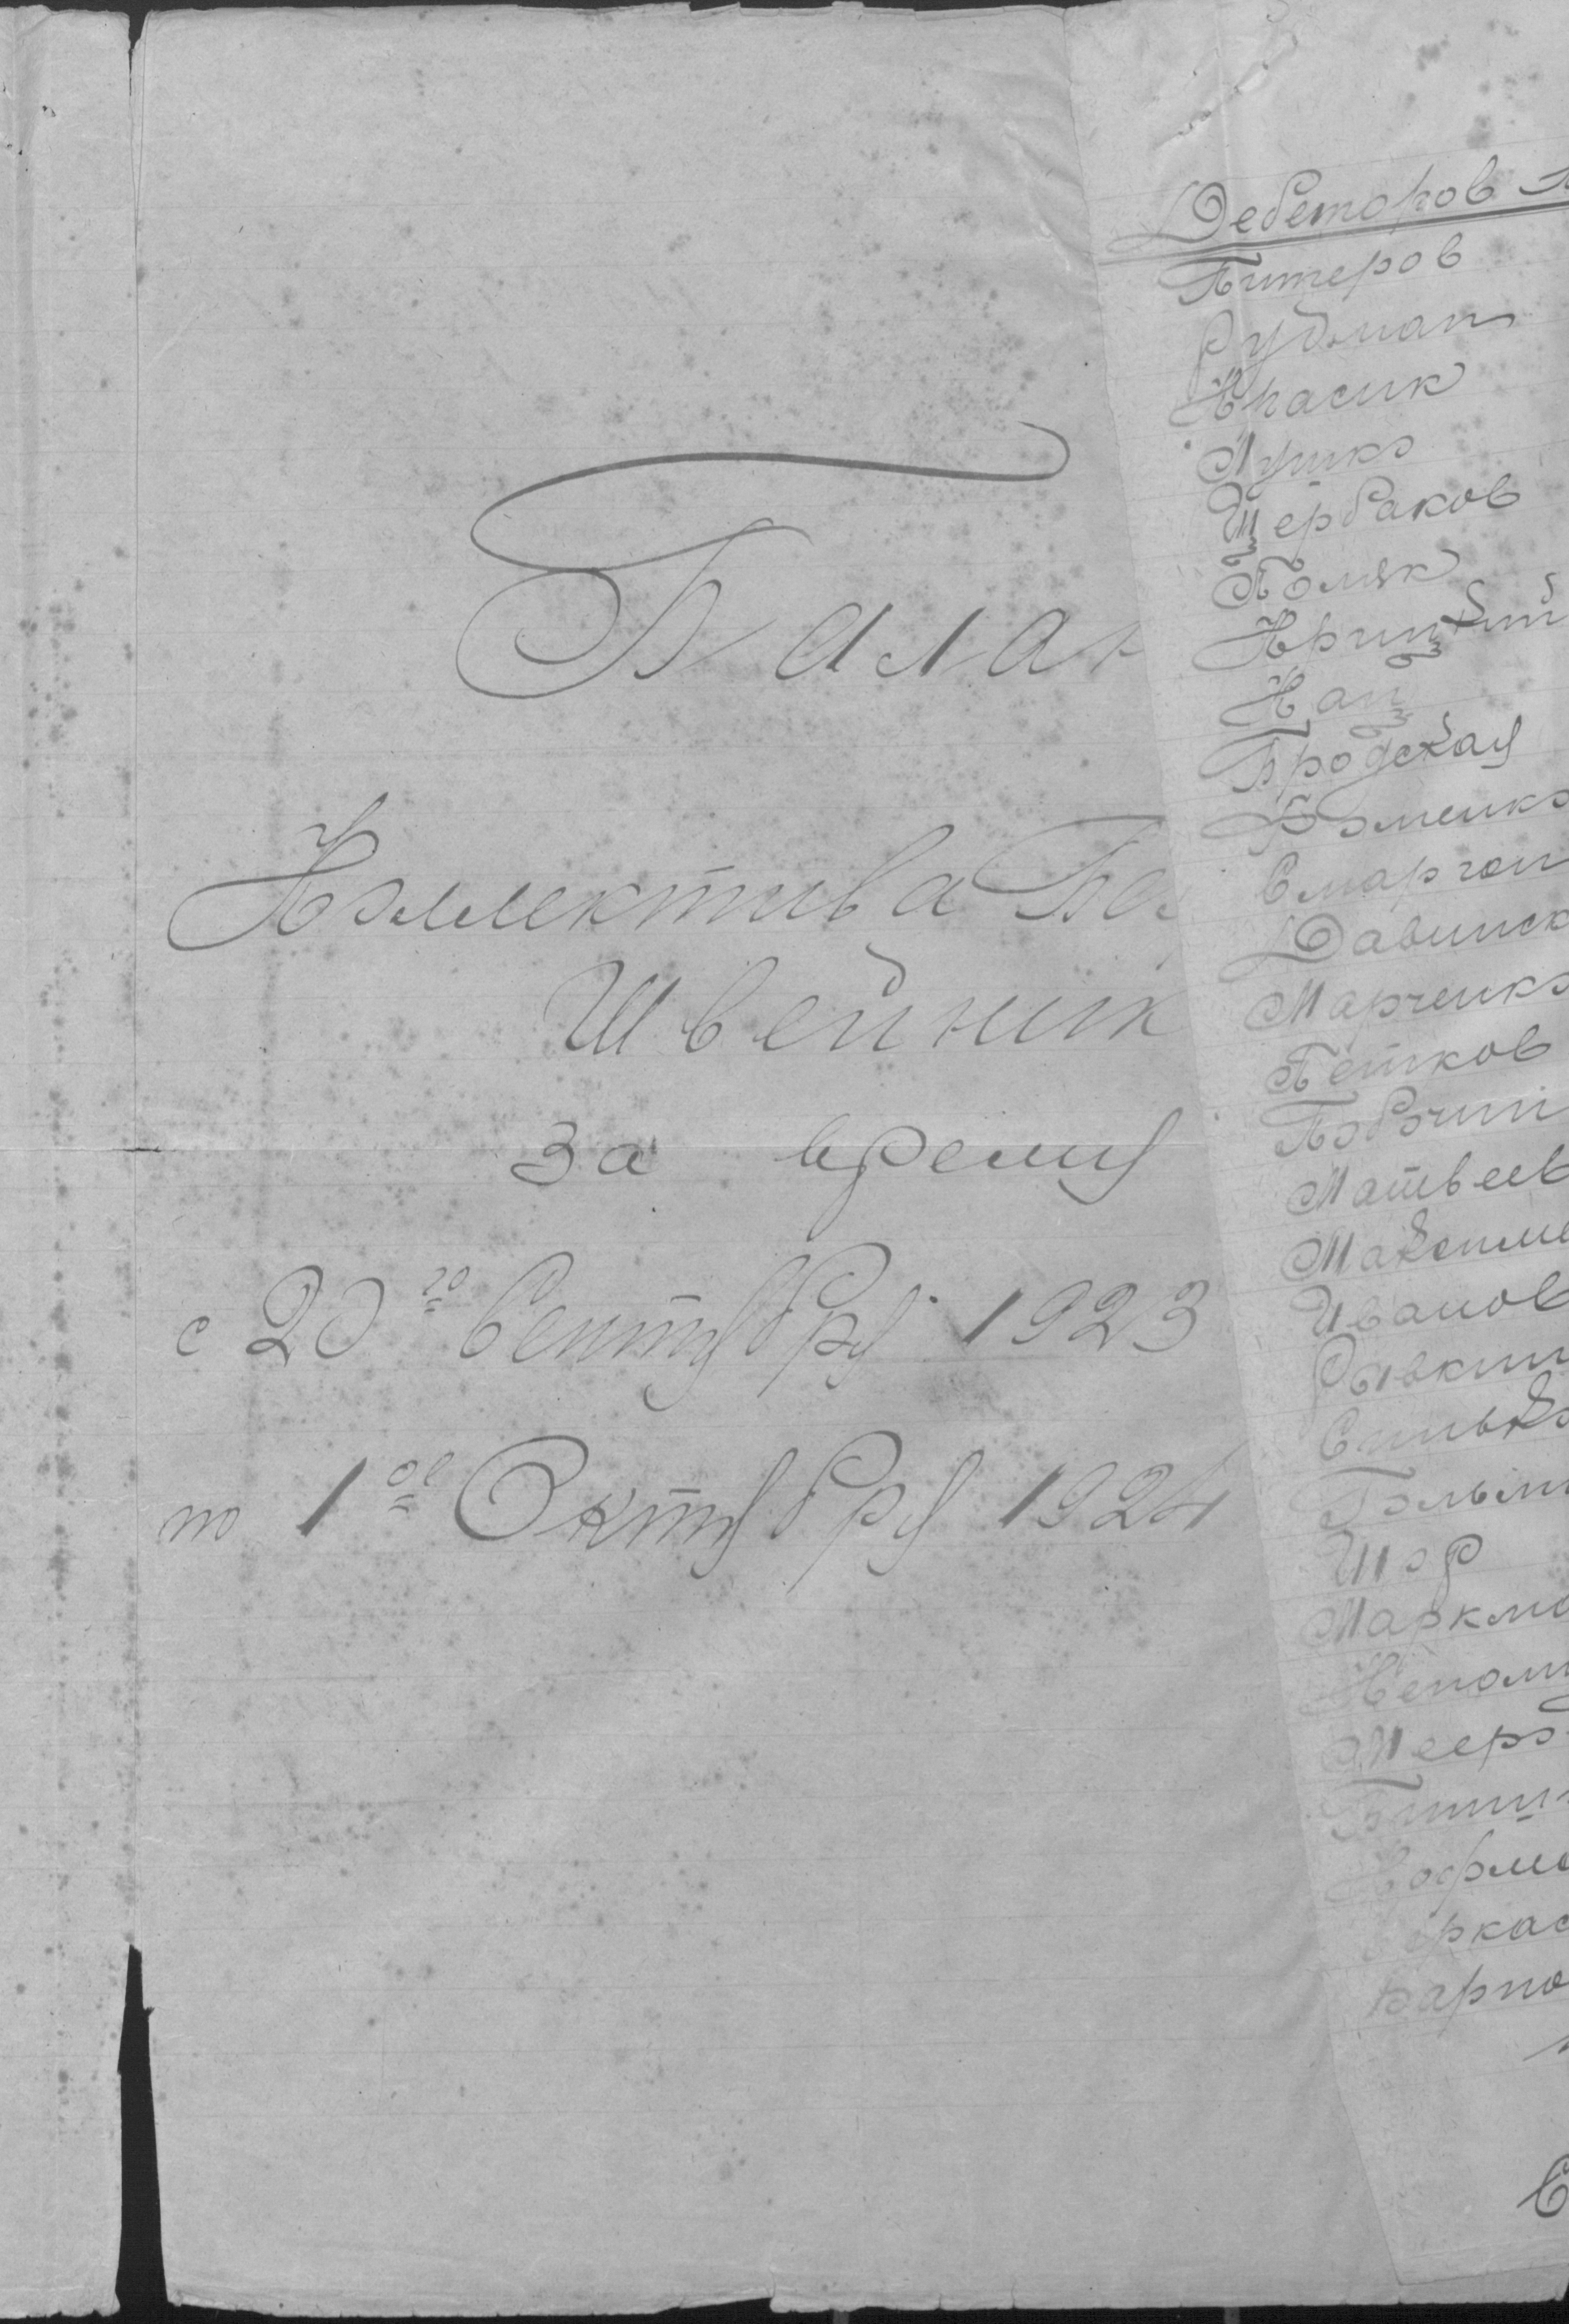 Балан
Коллектива Бе
Швейник
за время
с 20го Сентября 1923
по 1ое Октября 1924
Дебеторов
Питеров
Рудман
Красик
Лушко
Щербаков
Поляк
Крицкий
Кац
Бродская
Фоменко
Сморгон
Давинск
Марченко
Петков
Матвеев
Максиме
Иванов
Рывкин
Сулько
Гольм
Шор
Маркма
Непом
Мееро
Гофма
ркас
Карпо